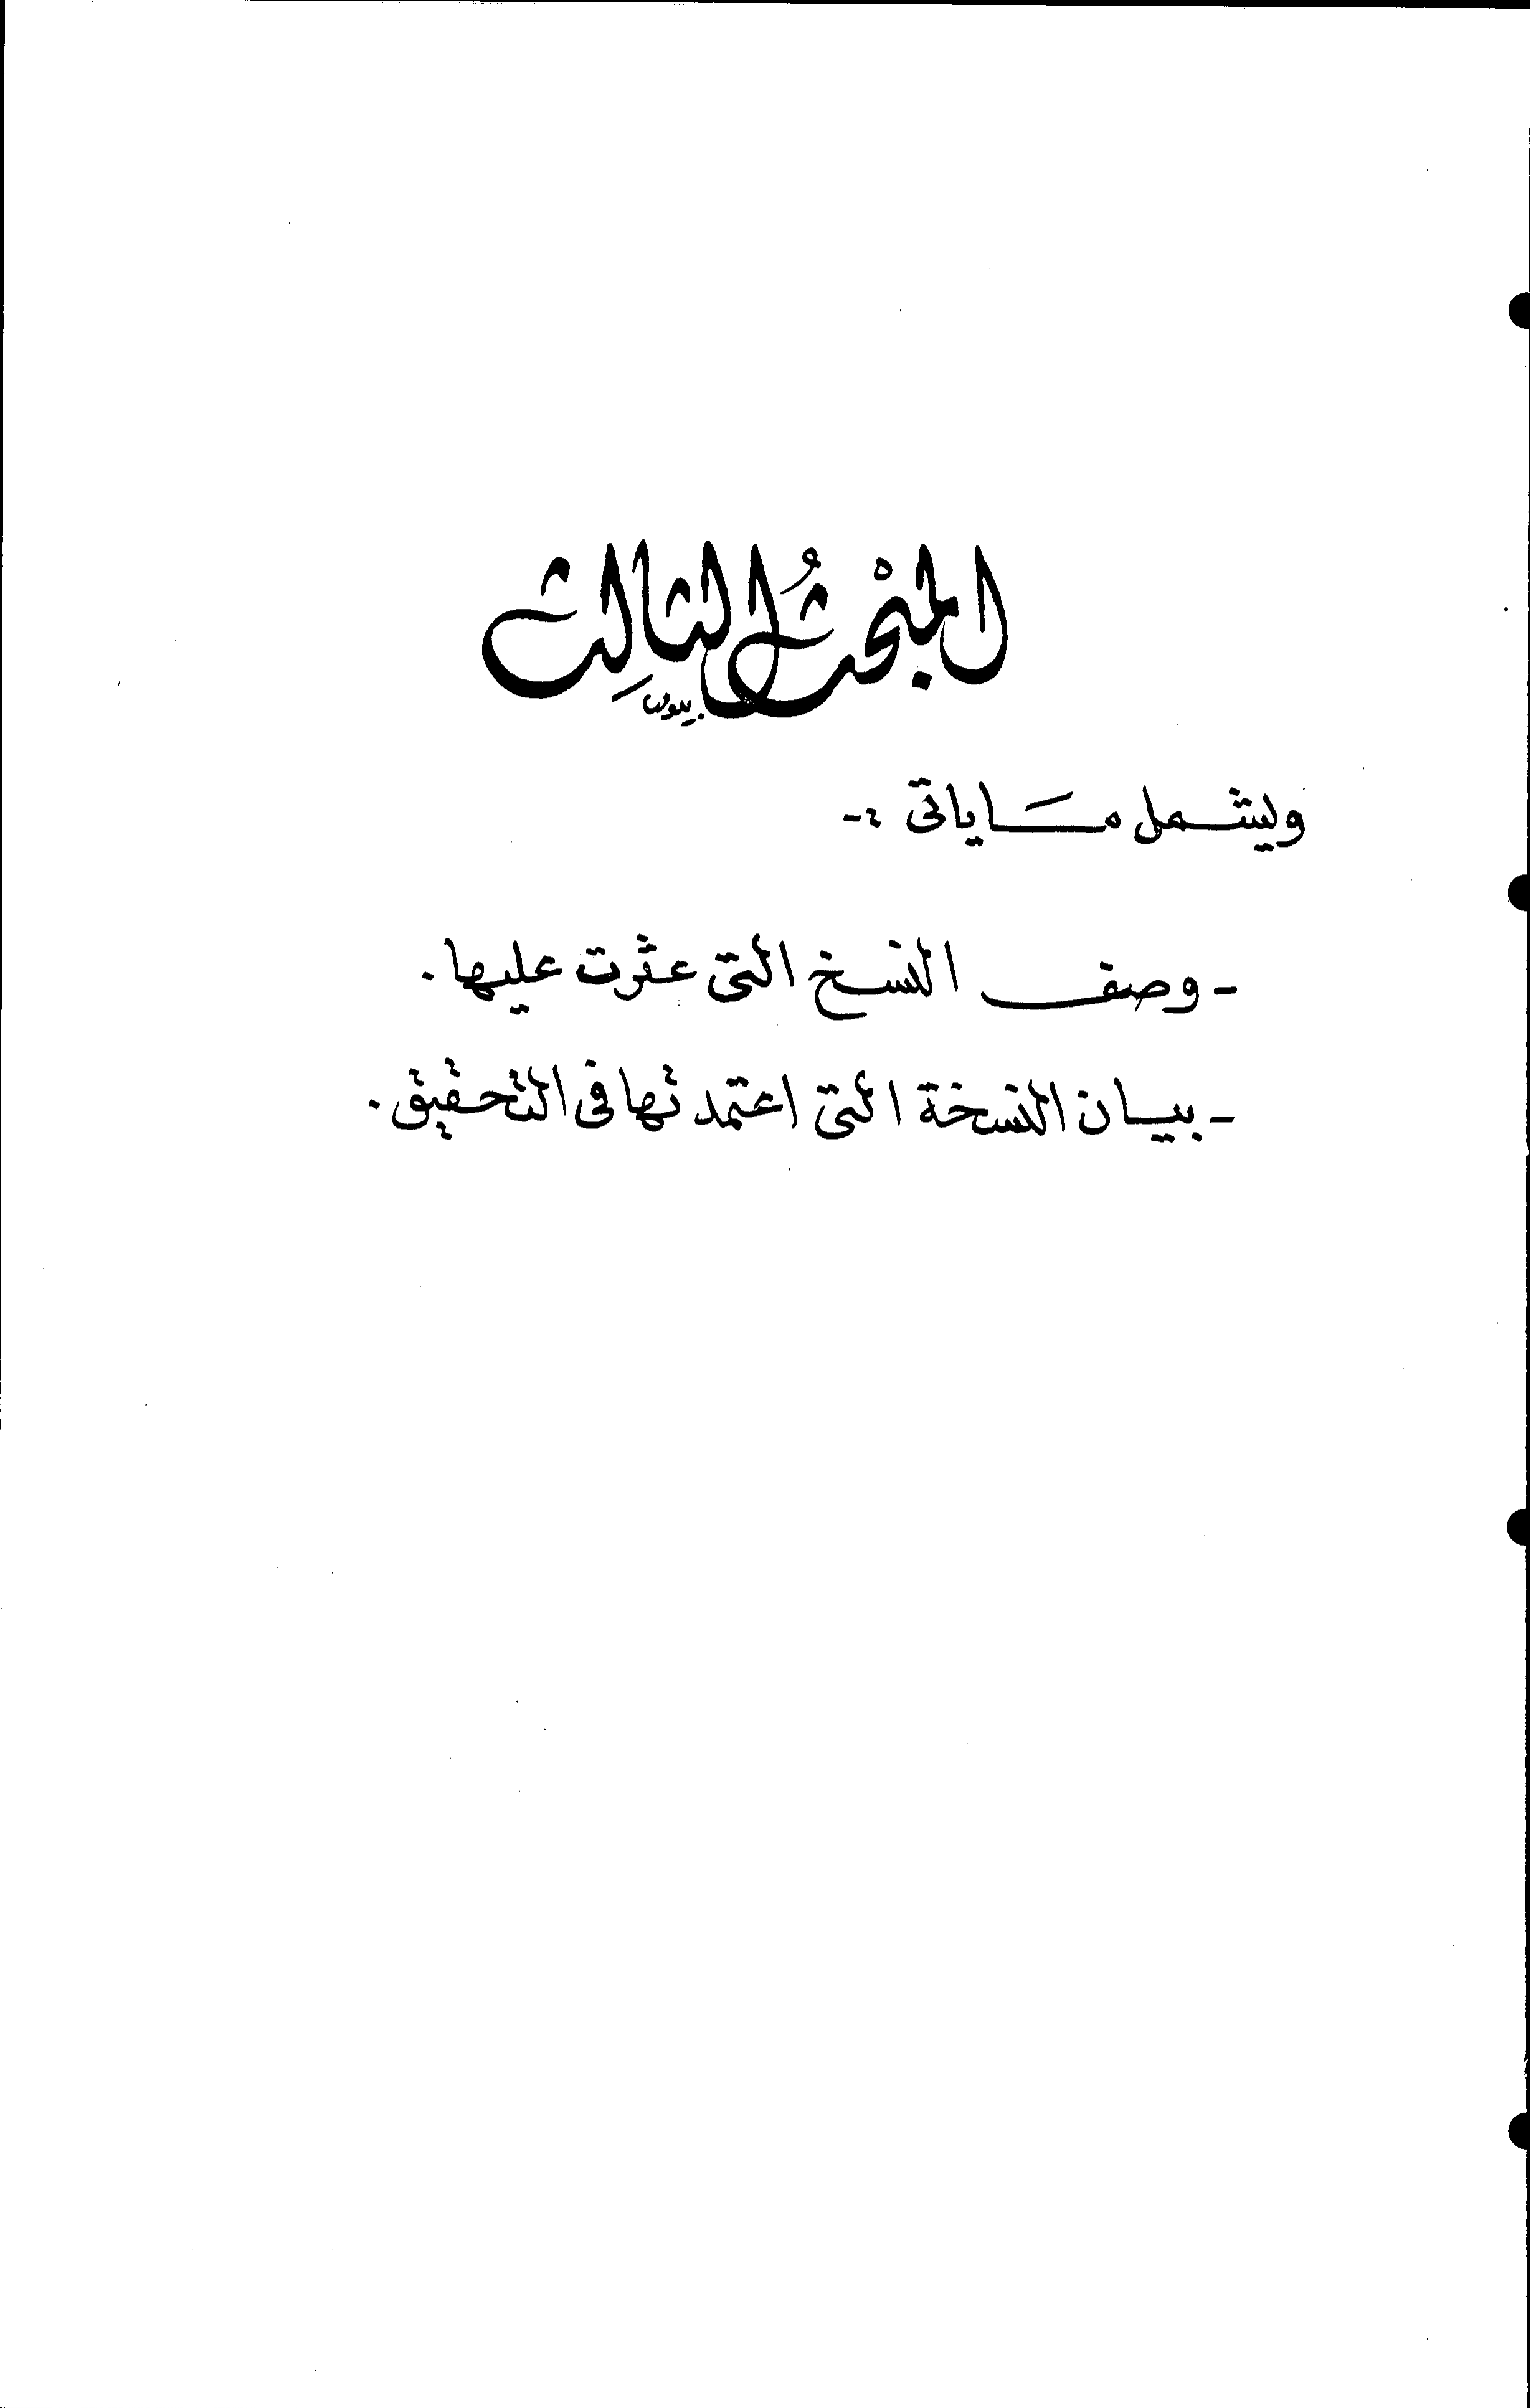 المبحْثُ الثالِث
ويشمل مَا ياتى :-
- وصف النسخ التى عثرت عليها .
- بيان النسخة التى اعتمدتها فى التحقيق .